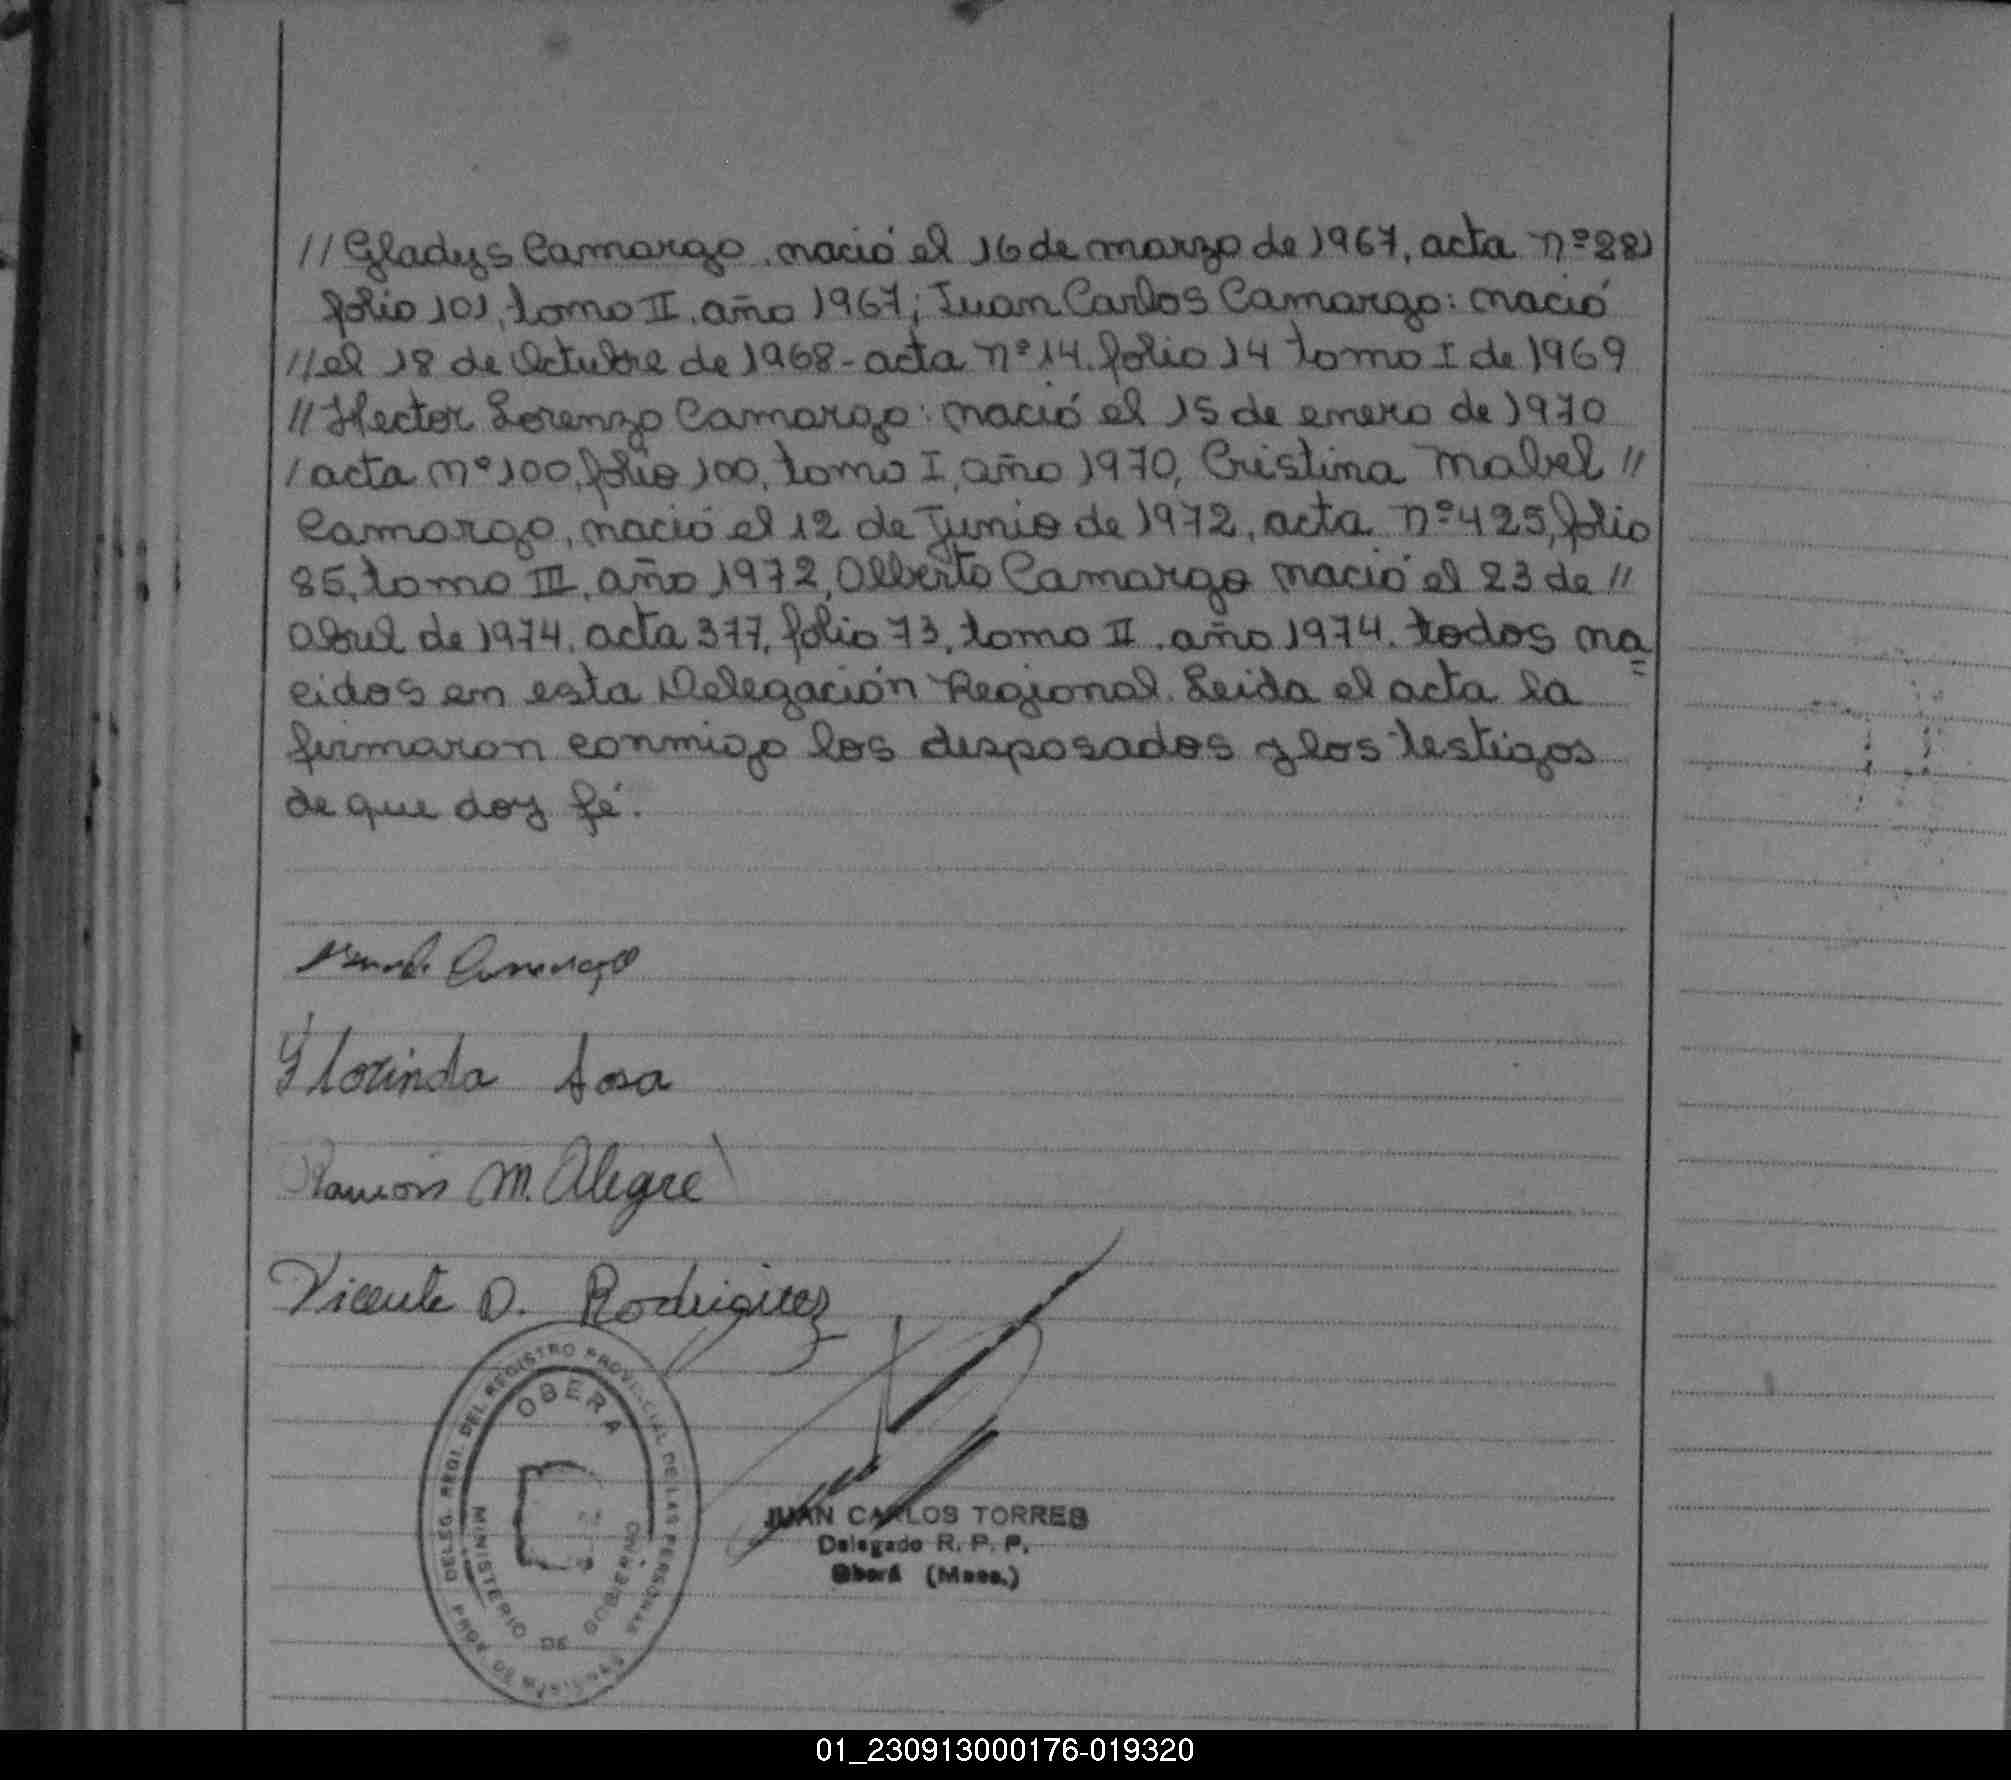 //Gladys Camargo, nació el 16 de marzo de 1967, acta nº 281
folio 101, tomo II, año 1967; Juan Carlos Camargo: nació
//el 18 de Octubre de 1968- acta nº 14. folio 14 tomo I de 1969
//Hector Lorenzo Camargo: nació el 15 de enero de 1970
/acta nº 100, folio 100, tomo I, año 1970, Cristina Mabel //
Camargo, nació el 12 de Junio de 1972, acta nº 425, folio
85, tomo III, año 1972, Alberto Camargo nació el 23 de //
Abril de 1974. acta 377, folio 73, tomo II. año 1974. todos na=
cidos en esta Delegación Regional. Leida el acta la
firmaron conmigo los desposados y los testigos
de que doy fé.
Camargo
Florinda Sosa
Ramón M. Alegre
Vicente D. Rodriguez
DELEG. REGI. DEL REGISTRO PROVINCIAL DE LAS PERSONAS
OBERA
MINISTERIO DE GOBIERNO
PROV. DE MISIONES
JUAN CARLOS TORRES
Delegado R. P. P.
Oberá (Mnes.)
01_230913000176-019320